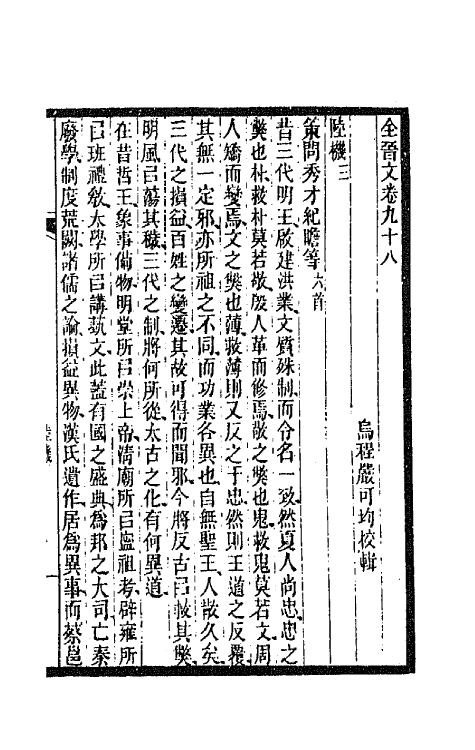 全晉文卷九十八
烏程嚴可均校輯
陸機三
策問秀才紀瞻等六首
昔三代明王啟建洪業文質殊制而令名一致然夏人尚忠忠之
獘也朴救朴莫若敬殷人革而修焉敬之獘也鬼救鬼莫若文周
人矯而變焉文之獘也薄救薄則又反之于忠然則王道之反覆
其無一定邪亦所祖之不同而功業各異也自無聖王人散久矣
三代之損益百姓之變遷其故可得而聞邪今將反古㠯救其獘
明風㠯蕩其穢三代之制將何所從太古之化有何異道
在昔哲王象事備物明堂所㠯崇上帝清廟所㠯寧祖考辟雍所
㠯班禮敎太學所㠯講蓺文此蓋有國之盛典爲邦之大司亡秦
廢學制度荒闕諸儒之論損益異物漢氏遺作居爲異事而蔡邕